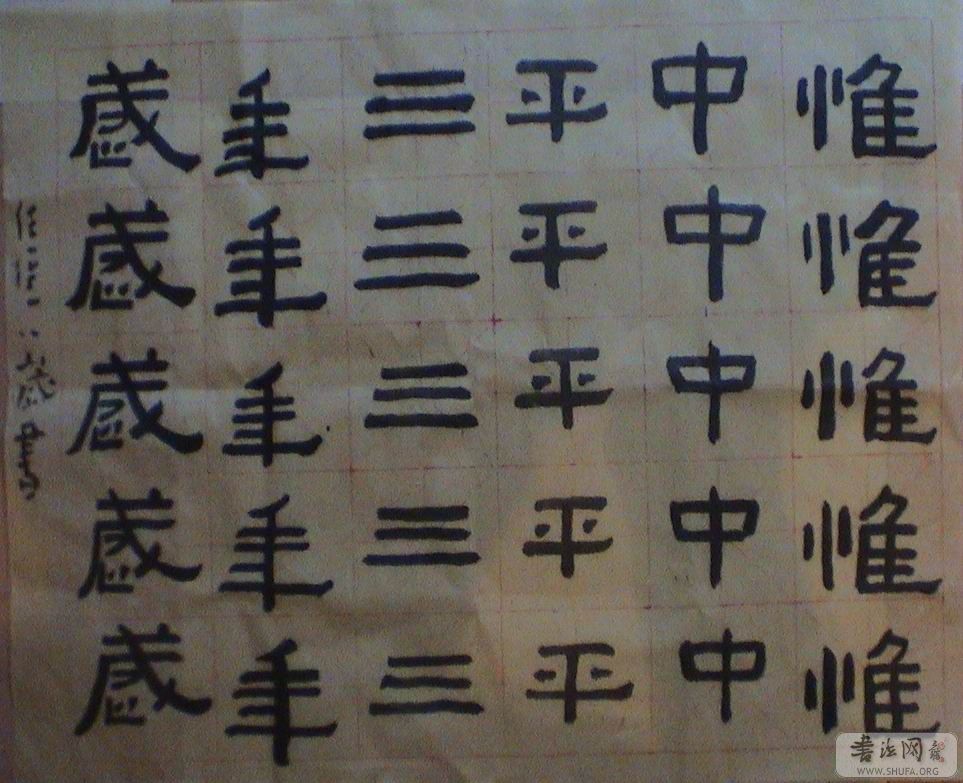 惟惟惟惟惟
中中中中中
平平平平平
三三三三三
年年年年年
歲歲歲歲歲
八歲書
書法网
WWW.SHUFA.ORG